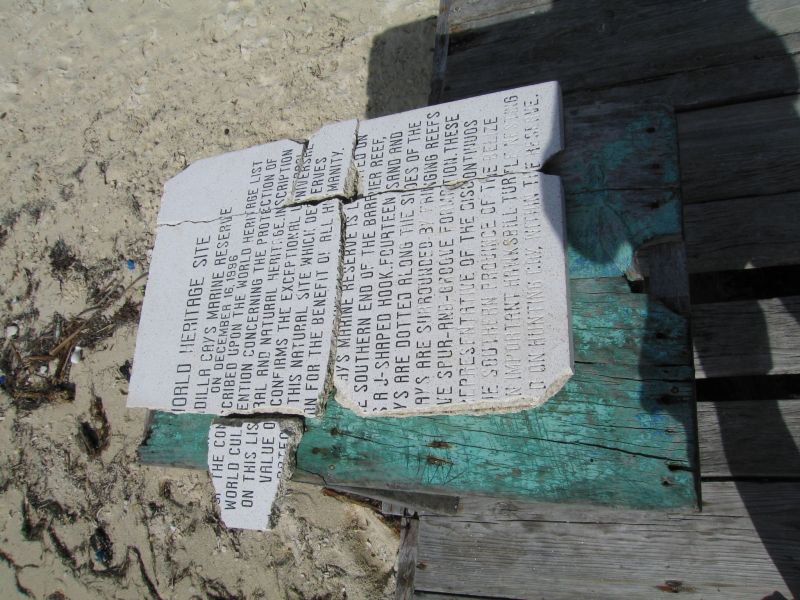 WORLD HERITAGE SITE
DILLA CAYS MARINE RESERVE
ON DECEMBER 16, 1996
CRIBED UPON THE WORLD HERITAGE LIST
OF THE CO ENTION CONCERNING THE PROTECTION OF
WORLD CUL RAL AND NATURAL HERITAGE. INSCRIPTION
ON THIS LIS CONFIRMS THE EXCEPTIONAL UNIVERSAL
VALUE O THIS NATURAL SITE WHICH DESERVES
ROTEC N FOR THE BENEFIT OF ALL HUMANITY.
AYS MARINE RESERVE IS L ED ON
E SOUTHERN END OF THE BARRIER REEF,
S A J-SHAPED HOOK. FOURTEEN SAND AND
YS ARE DOTTED ALONG THE SIDES OF THE
AYS ARE SURROUNDED BY FRINGING REEFS
VE SPUR-AND-GROOVE FORMATION. THESE
EPRESENTATIVE OF THE DISCONTINUOUS
E SOUTHERN PROVINCE OF THE BELIZE
N IMPORTANT HAWKSBILL TURTLE NESTING
D ON HUNTING CAY, WITHIN THE RESERVE.